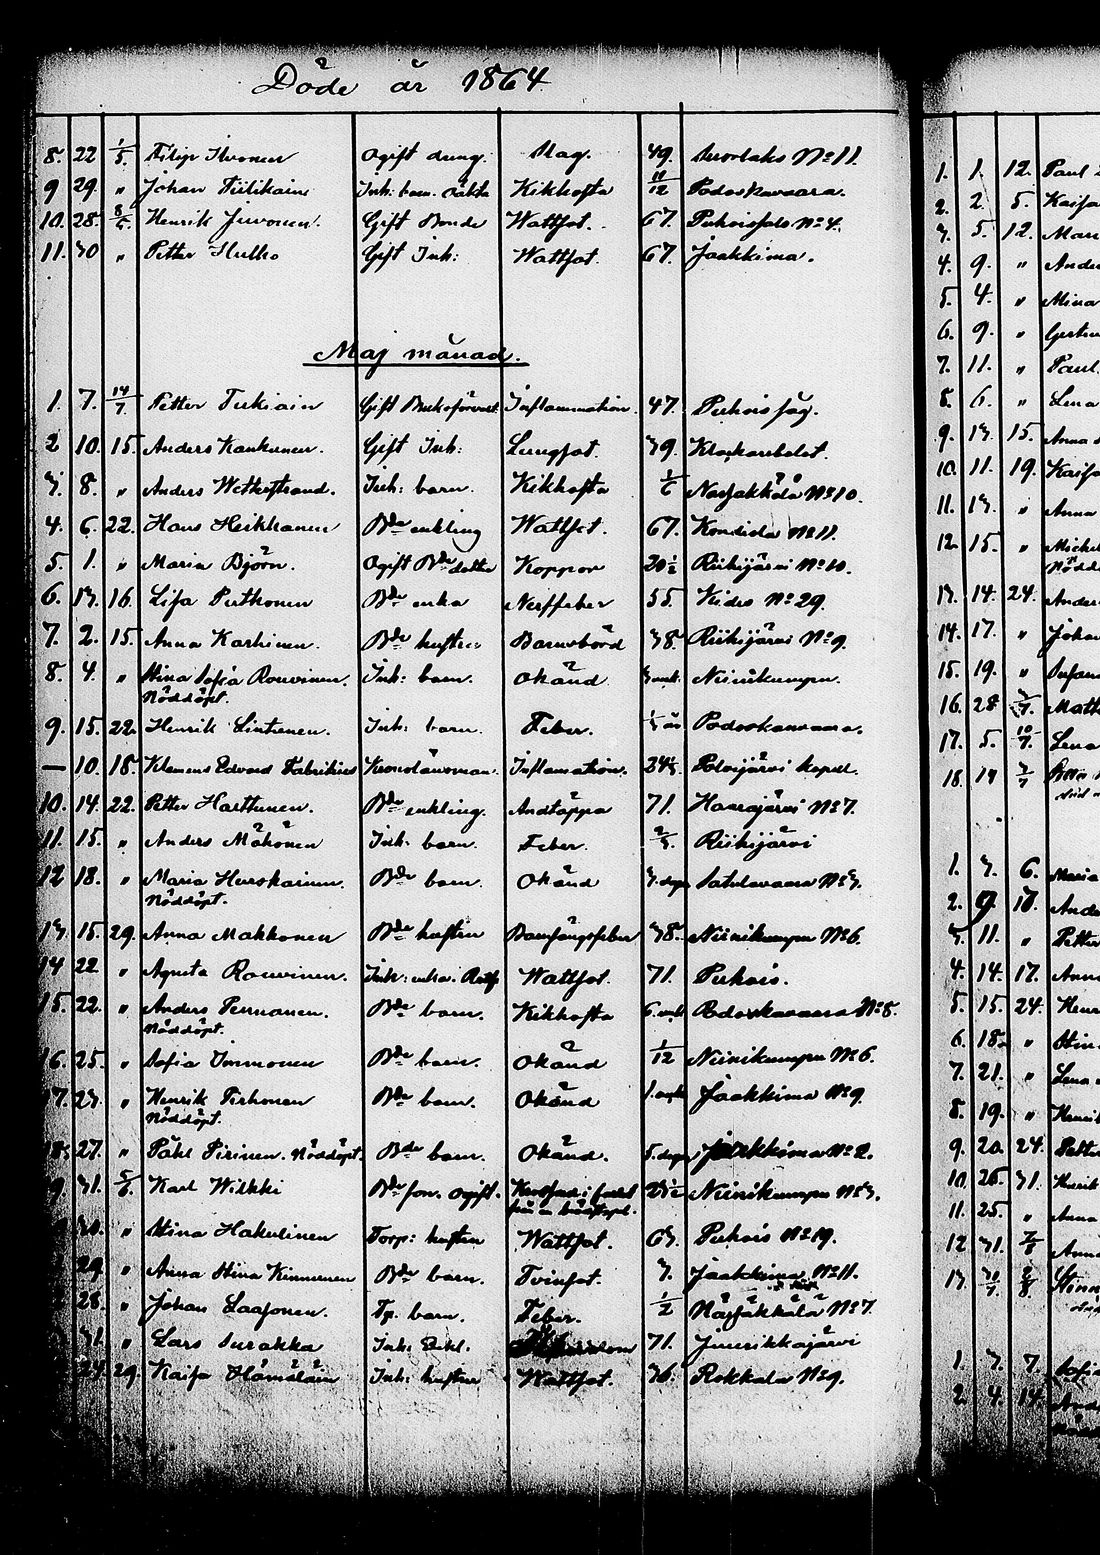 Döde år 1864
8. 22 1/5. Filip Ihvonen Ogift dreng. Slag. 49. Suorlaks No 11.
9 29. " Johan Tiilikain Inh: barn. Kikhosta 11/12 Podoskavaara.
10. 28 8/5. Henrik Juvonen. Gift Bonde Wattsot. 67. Puhois No 4.
11. 30 " Petter Hulko Gift Inh: Wattsot. 67. Jaakkima.
Maj månad.
1. 7. 14/7 Petter Tukiain Gift Inflammation. 47. Puhois såg.
2 10. 15. Anders Kankunen. Gift Inh: Lungsot. 39. Klockarebolet.
3. 8. " Anders Wetkostrand. Inh: barn. Kikhosta 1/6 Närsäkkälä No 10.
4. 6. 22. Hans Heikkanen Bde enkling Wattsot. 67. Kondida No 11.
5. 1. " Maria Björn. Ogift Bde dotter Koppor 20 1/2 Riihijärvi No 10.
6. 13. 16. Lisa Puthonen Bde enka Nerffeber 55. Kides No 29.
7. 2. 15. Anna Karhinen. Bde hustru Barnsbörd 38. Riihijärvi No 9.
8. 4. " Stina Sofia Rouvinen. Inh: barn. Okänd Niinikumpu.
Nöddöpt.
9. 15. 22. Henrik Lintunen. Inh: barn. Feber. Podoskavaara.
— 10. 18. Klemens Edvard Fabritius Kronolänsman. Inflamation. 34 Polvijärvi kapell.
10. 14. 22. Petter Harttunen. Bde enkling. Andtäppa 71. Haarajärvi No 7.
11. 15. " Anders Mähönen Inh: barn. Feber. 2/5. Riihijärvi
12 18. " Maria Hurskainen. Bde barn. Okänd 3. dagr Satulavaara No 3.
Nöddöpt.
13. 15. 29. Anna Makkonen Bde hustru Barnsängsfeber 38. Niinikumpu No 6.
14 22 " Agneta Rouvinen. Inh: enka. Wattsot. 71. Puhois.
15. 22. " Anders Pernanen. Bde barn. Kikhosta 6. Podoskavaara No 8.
Nöddöpt.
16. 25. " Sofia Immonen Bde barn. Okänd 1/12 Niinikumpu No 6.
17. 23. " Henrik Tirhonen Bde barn. Okänd 1. Jaakkima No 9.
Nöddöpt.
18. 27. " Påhl Pirinen. Nöddöpt Bde barn. Okänd. 5. dagr Jaakkima No 2.
9. 31. 5/6. Karl Wilkki Bde son. ogift. Niinikumpu No 3.
30. " Stina Hakulinen Torp: hustru Wattsot. 63. Puhois No 19.
29 " Anna Stina Kinnunen Bde barn. Tvinsot. 3. Jaakkima No 11.
28. " Johan Laasonen. Tp. barn. Feber. 1/2 Närsäkkälä No 7.
31. " Lars Surakka Inh: 71. Juurikkajärvi
24. 29. Kaisa Hämäläin Inh: hustru Wattsot. 36. Rokkala No 9.
1. 1. 12. Paul
2. 2. 5. Kaisa
3. 5. 12. Mari
4. 9. " Ande
5. 4. " Mina
6. 9. " Gertru
7. 11. " Paul.
8. 6. " Lena
9. 13. 15. Anna
10. 11. 19. Kaisa
11. 13. " Anna
12. 15. " Michel
Nödd
13. 14. 24. Ander
14. 17. " Johan
15. 19. " Susan
16. 28 3/7. Matt
17. 5. 10/7. Lena
18. 19 3/7
1. 3. 6. Maria
2. 9. 10. Ande
3. 11. " Petter
4. 14. 17. Anna
5. 15. 24. Henr
6. 18. " Stin
7. 21. " Lena
8. 19. " Henrik
9. 20. 24. Petter
10. 26. 31. Henrik
11. 25. " Anna
12 31. 7/8 Anna
13. 31/7. 2/8 Stina
1. 3. 7. Sofia
2. 4. 14. And
Nödd